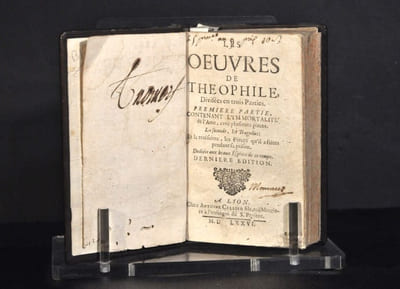 LES
OEUVRES
DE
THEOPHILE,
Divisées en trois Parties.
PREMIERE PARTIE,
CONTENANT L'IMMORTALITÉ
de l'Ame, avec plusieurs pieces.
La seconde, les Tragedies;
Et la troisiéme, les Pieces qu'il a faites
pendant sa prison.
Dediées aux beaux Esprits de ce temps.
DERNIERE EDITION.
A LION,
Chez ANTOINE CELLIER
à l'enseigne de S.
M. D. LXXVI.